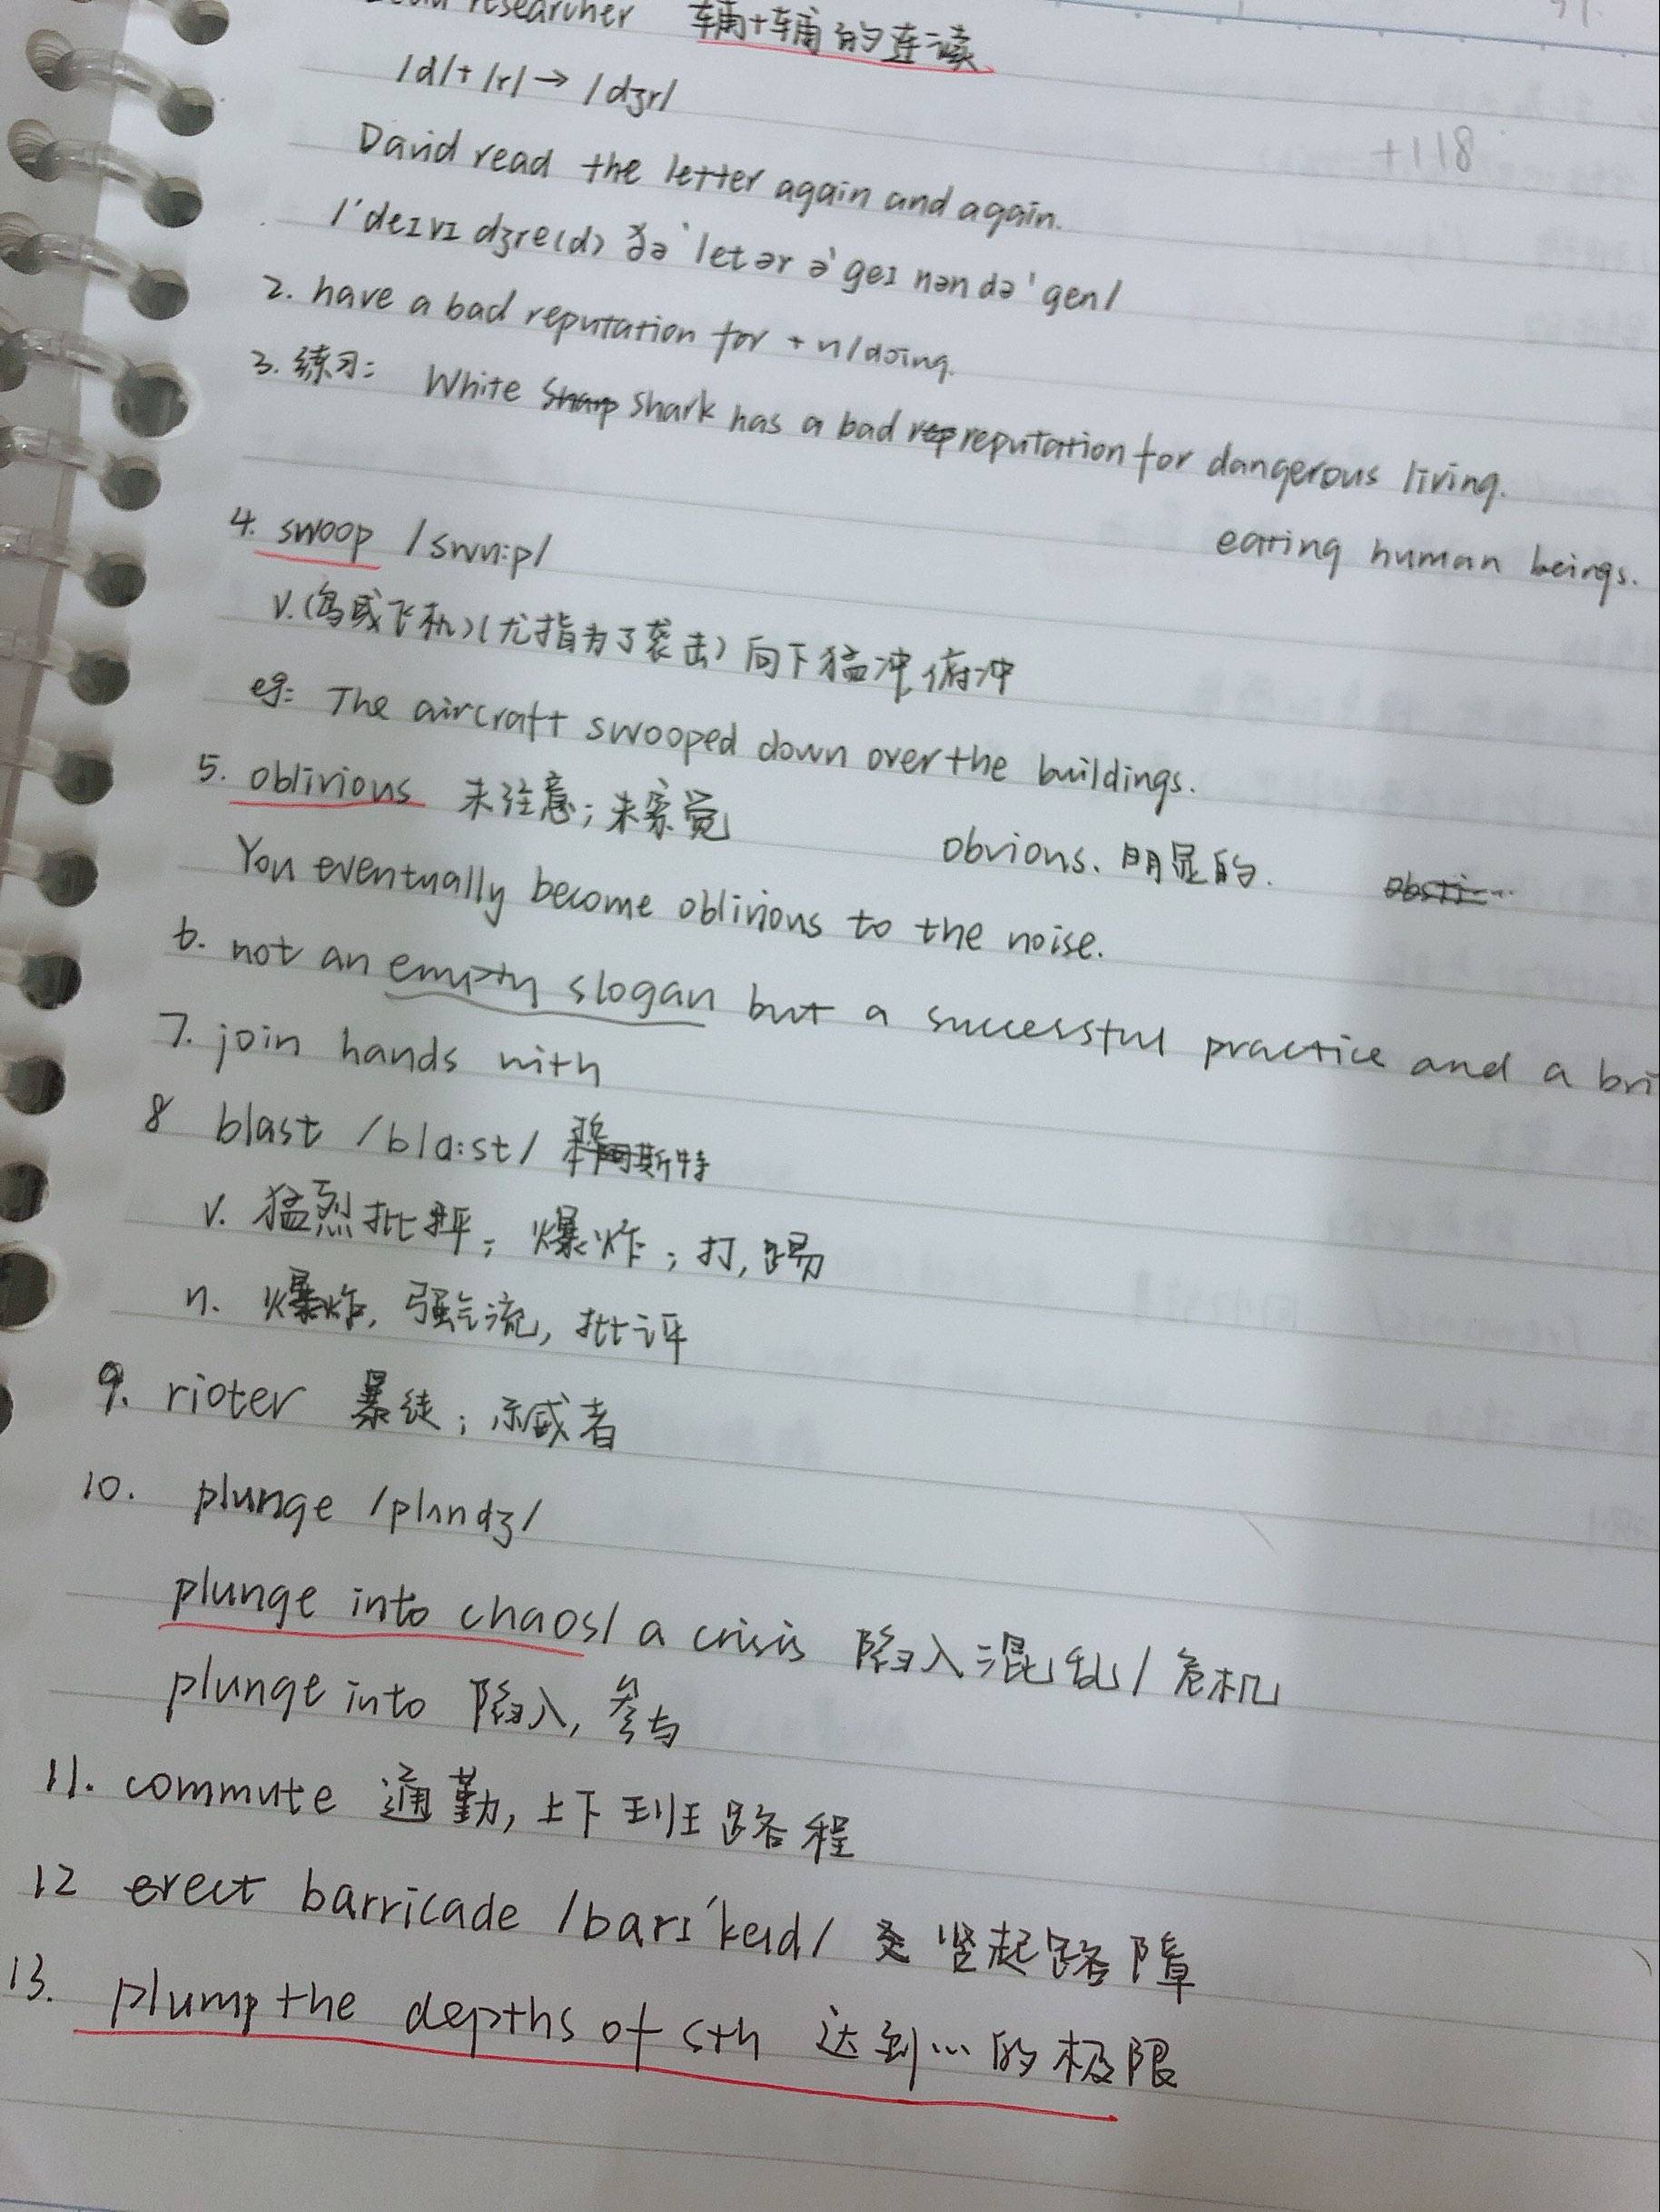 researcher 辅+辅的连读
/d/+/r/→/dʒr/
David read the letter again and again.
/ˈdeɪvɪ dʒre(d) ðə ˈletər əˈgeɪ nən dəˈgen/
2. have a bad reputation for + n/doing.
3. 练习: White Shark has a bad reputation for dangerous living.
eating human beings.
4. swoop /swu:p/
v.(鸟或飞机)(尤指为了袭击)向下猛冲,俯冲
eg: The aircraft swooped down over the buildings.
5. oblivious 未注意;未察觉
obvious. 明显的.
You eventually become oblivious to the noise.
6. not an empty slogan but a successful practice and a bri
7. join hands with
8 blast /blɑ:st/ 斯特
v. 猛烈批评; 爆炸; 打,踢
n. 爆炸, 强气流, 批评
9. rioter 暴徒; 示威者
10. plunge /plʌndʒ/
plunge into chaos/ a crisis 陷入混乱/危机
plunge into 陷入, 参与
11. commute 通勤, 上下班路程
12 erect barricade /barɪˈkeɪd/ 竖起路障
13. plump the depths of sth 达到…的极限